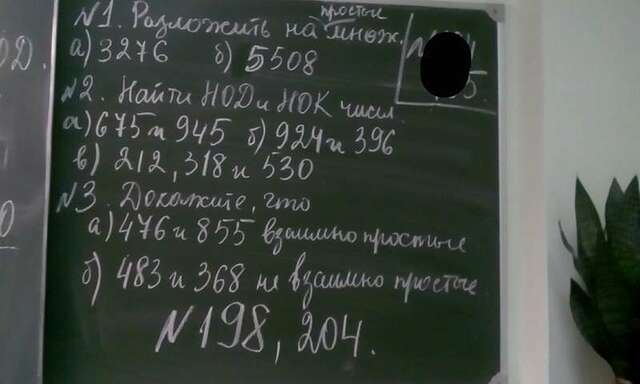 №1. Разложить на простые множ.
а) 3276 б) 5508
№2. Найти НОД и НОК чисел
а) 675 и 945 б) 924 и 396
в) 212, 318 и 530
№3. Докажите, что
а) 476 и 855 взаимно простые
б) 483 и 368 не взаимно простые
№198, 204.